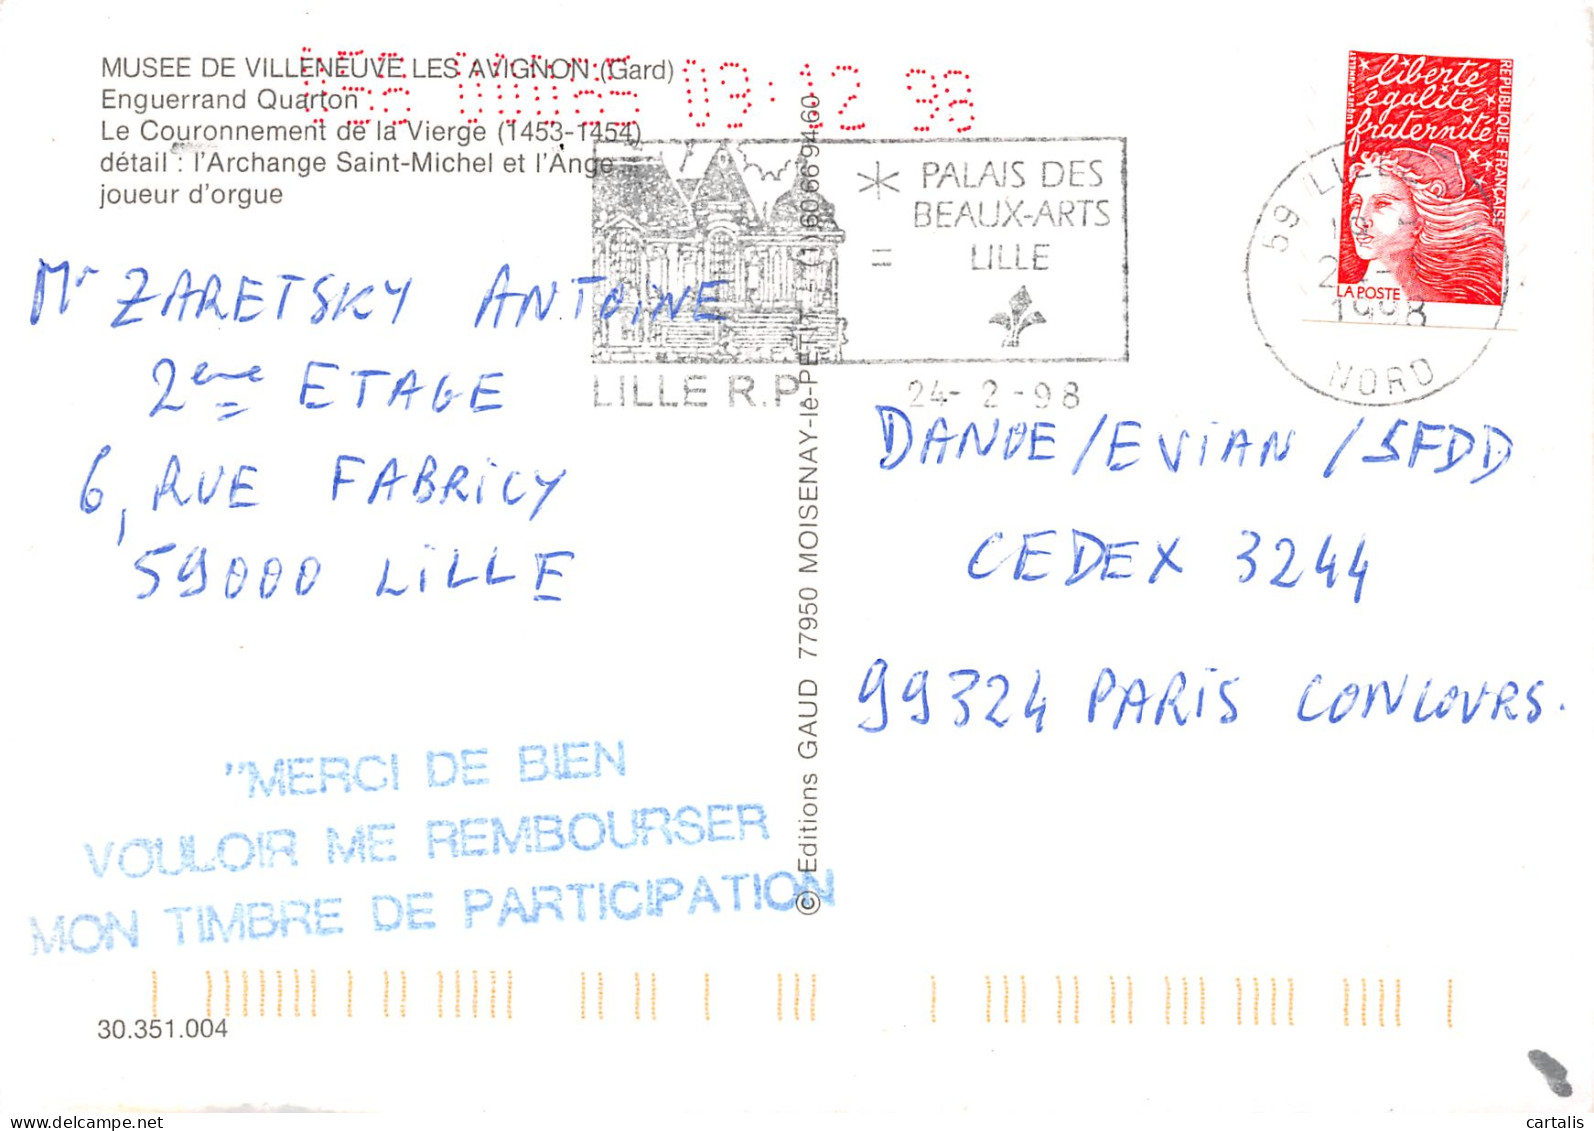 MUSEE DE VILLENEUVE LES AVIGNON (Gard)
Enguerrand Quarton
Le Couronnement de la Vierge (1453-1454)
détail : l'Archange Saint-Michel et l'Ange
joueur d'orgue
09.12 98
PALAIS DES
BEAUX-ARTS
LILLE
LILLE R.P
24-2-98
59 LILLE
1998
NORD
liberté
égalité
fraternité
REPUBLIQUE FRANÇAISE
LA POSTE
Mr ZARETSKY ANTOINE
2eme ETAGE
6, RUE FABRICY
59000 LILLE
DANOE/EVIAN/SFDD
CEDEX 3244
99324 PARIS CONCOURS.
© Editions GAUD 77950 MOISENAY-le-PETIT - (1) 60 66 94 60
"MERCI DE BIEN
VOULOIR ME REMBOURSER
MON TIMBRE DE PARTICIPATION
30.351.004
cartalis